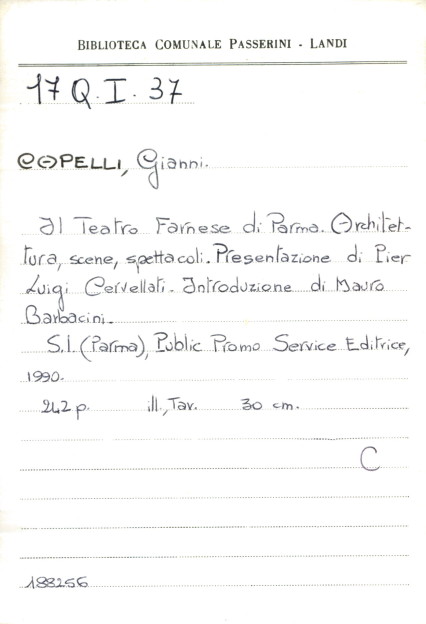 BIBLIOTECA COMUNALE PASSERINI - LANDI
17 Q. I. 37
CAPELLI, Gianni.
Il Teatro Farnese di Parma. Architet-
tura, scene, spettacoli. Presentazione di Pier
Luigi Cervellati. Introduzione di Mauro
Barbacini.
S.l. (Parma), Public Promo Service Editrice,
1990.
242 p. ill., Tav. 30 cm.
C
188256